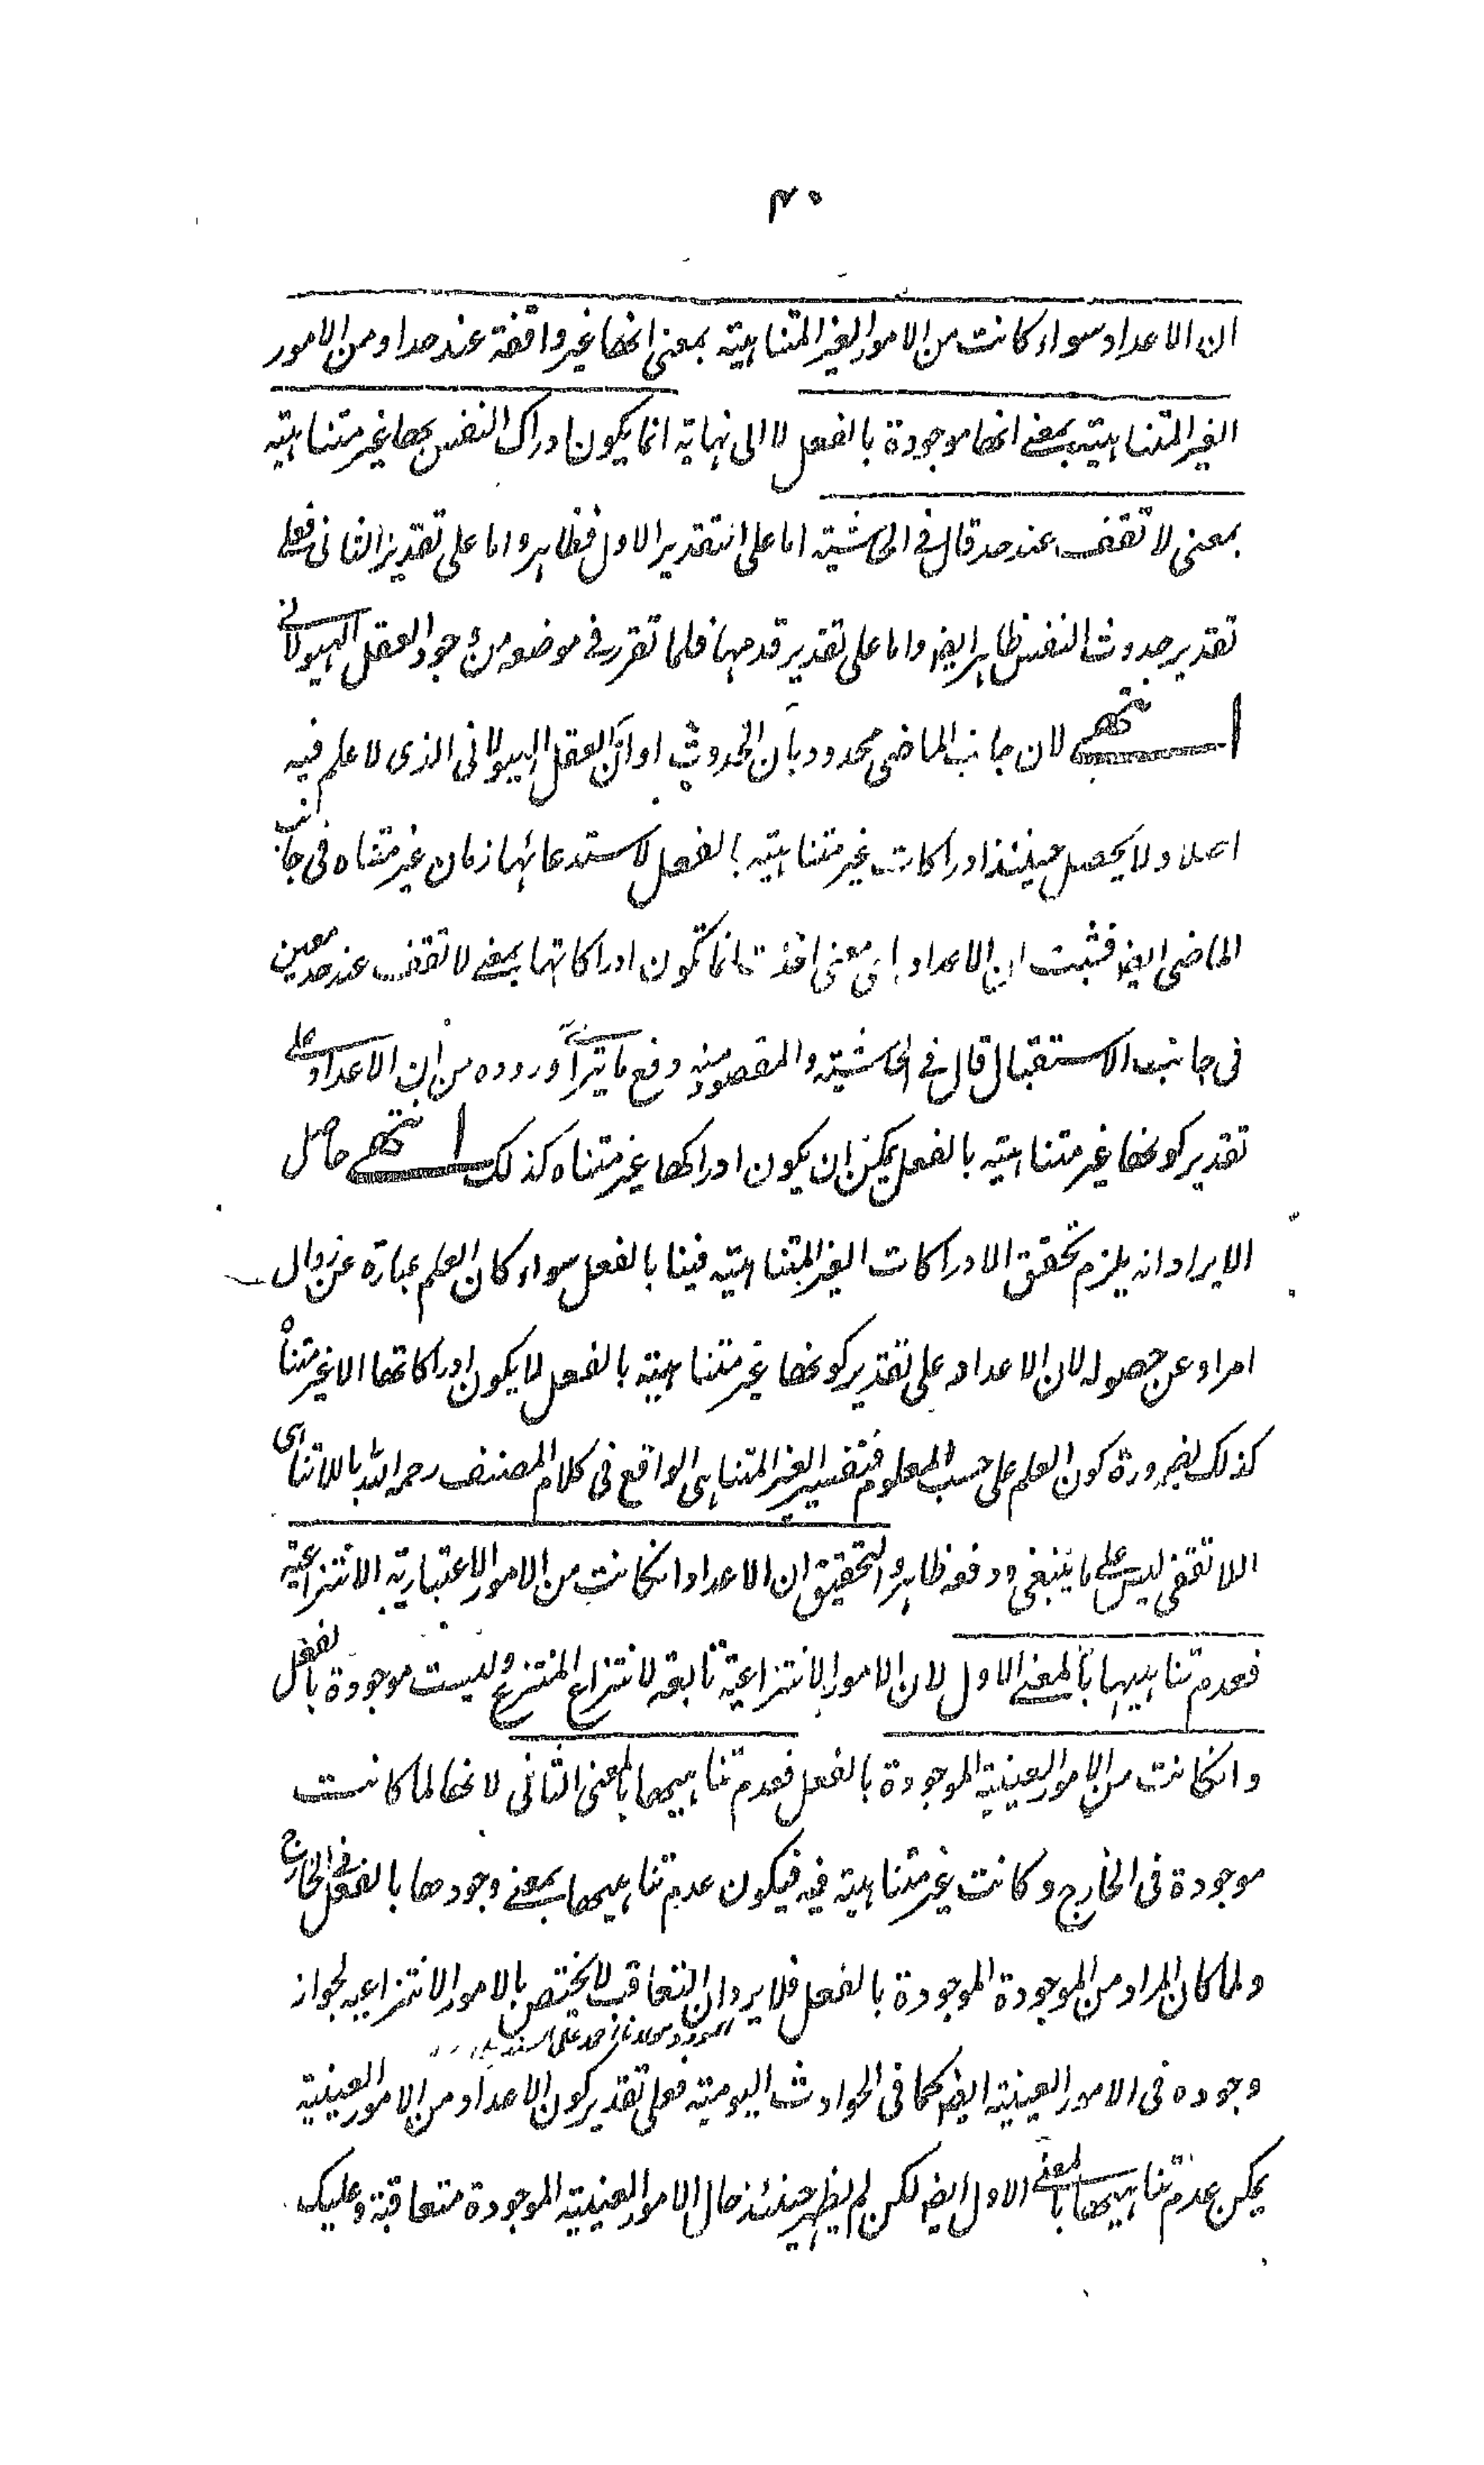 ۴۰
ان الاعداد سواء كانت من الامور الغير المتناهية بمعنى انها غير واقفة عند حد او من الامور
الغير المتناهية بمعنى انها موجودة بالفعل لا الى نهاية انما يكون ادراك النفس بها غير متناهية
بمعنى لا تقف عند حد قال فى الحاشية اما على التقدير الاول فظاهر واما على تقدير الثانى فعلى
تقدير حدوث النفس ظاهر ايضا واما على تقدير قدمها فلما تقرر فى موضعه من وجود العقل الهيولانى
انتهى لان جانب الماضى محدود بأن الحدوث او ان العقل الهيولانى الذى لا علم فيه
اصلا ولا يحصل حينئذ ادراكات غير متناهية بالفعل لاستدعائها زمان غير متناه فى جانب
الماضى ايضا فثبت ان الاعداد باى معنى اخذت انما تكون ادراكاتها بمعنى لا تقف عند حد معين
فى جانب الاستقبال قال فى الحاشية والمقصود منه دفع ما يترا أى وروده من ان الاعداد على
تقدير كونها غير متناهية بالفعل يمكن ان يكون ادراكها غير متناه كذلك انتهى حاصل
الايراد انه يلزم تحقق الادراكات الغير المتناهية فينا بالفعل سواء كان العلم عبارة عن زوال
امر او عن حصوله لان الاعداد على تقدير كونها غير متناهية بالفعل لا يكون ادراكاتها الا غير متناه
كذلك لضرورة كون العلم على حسب المعلوم فتفسير الغير المتناهى الواقع فى كلام المصنف رحمه الله باللاتناهى
اللاتقفى ليس على ما ينبغى ودفعه ظاهر والتحقيق ان الاعداد ان كانت من الامور الاعتبارية الانتزاعية
فعدم تناهيها بالمعنى الاول لان الامور الانتزاعية تابعة لانتزاع المنتزع وليست موجودة بالفعل
وان كانت من الامور العينية الموجودة بالفعل فعدم تناهيها بالمعنى الثانى لانها لما كانت
موجودة فى الخارج وكانت غير متناهية فيه فيكون عدم تناهيها بمعنى وجودها بالفعل فى الخارج
ولما كان المراد من الموجودة الموجودة بالفعل فلا يرد ان التعاقب لا يختص بالامور الانتزاعية لجواز
وجوده فى الامور العينية ايضا كما فى الحوادث اليومية فعلى تقدير كون الاعداد من الامور العينية
يمكن عدم تناهيها بالمعنى الاول ايضا لكن لم يظهر حينئذ حال الامور العينية الموجودة متعاقبة وعليك